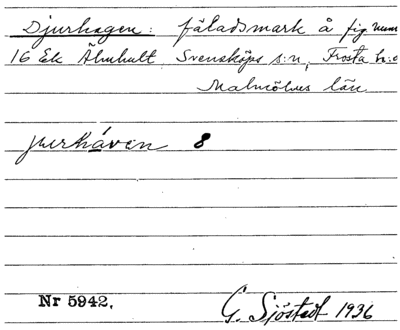 Djurhagen: fäladsmark å fig num
16 Ek Älmhult, Svensköps s:n, Frosta h:d
Malmöhus län
jurháven 8
Nr 5942.
G. Sjöstedt 1936